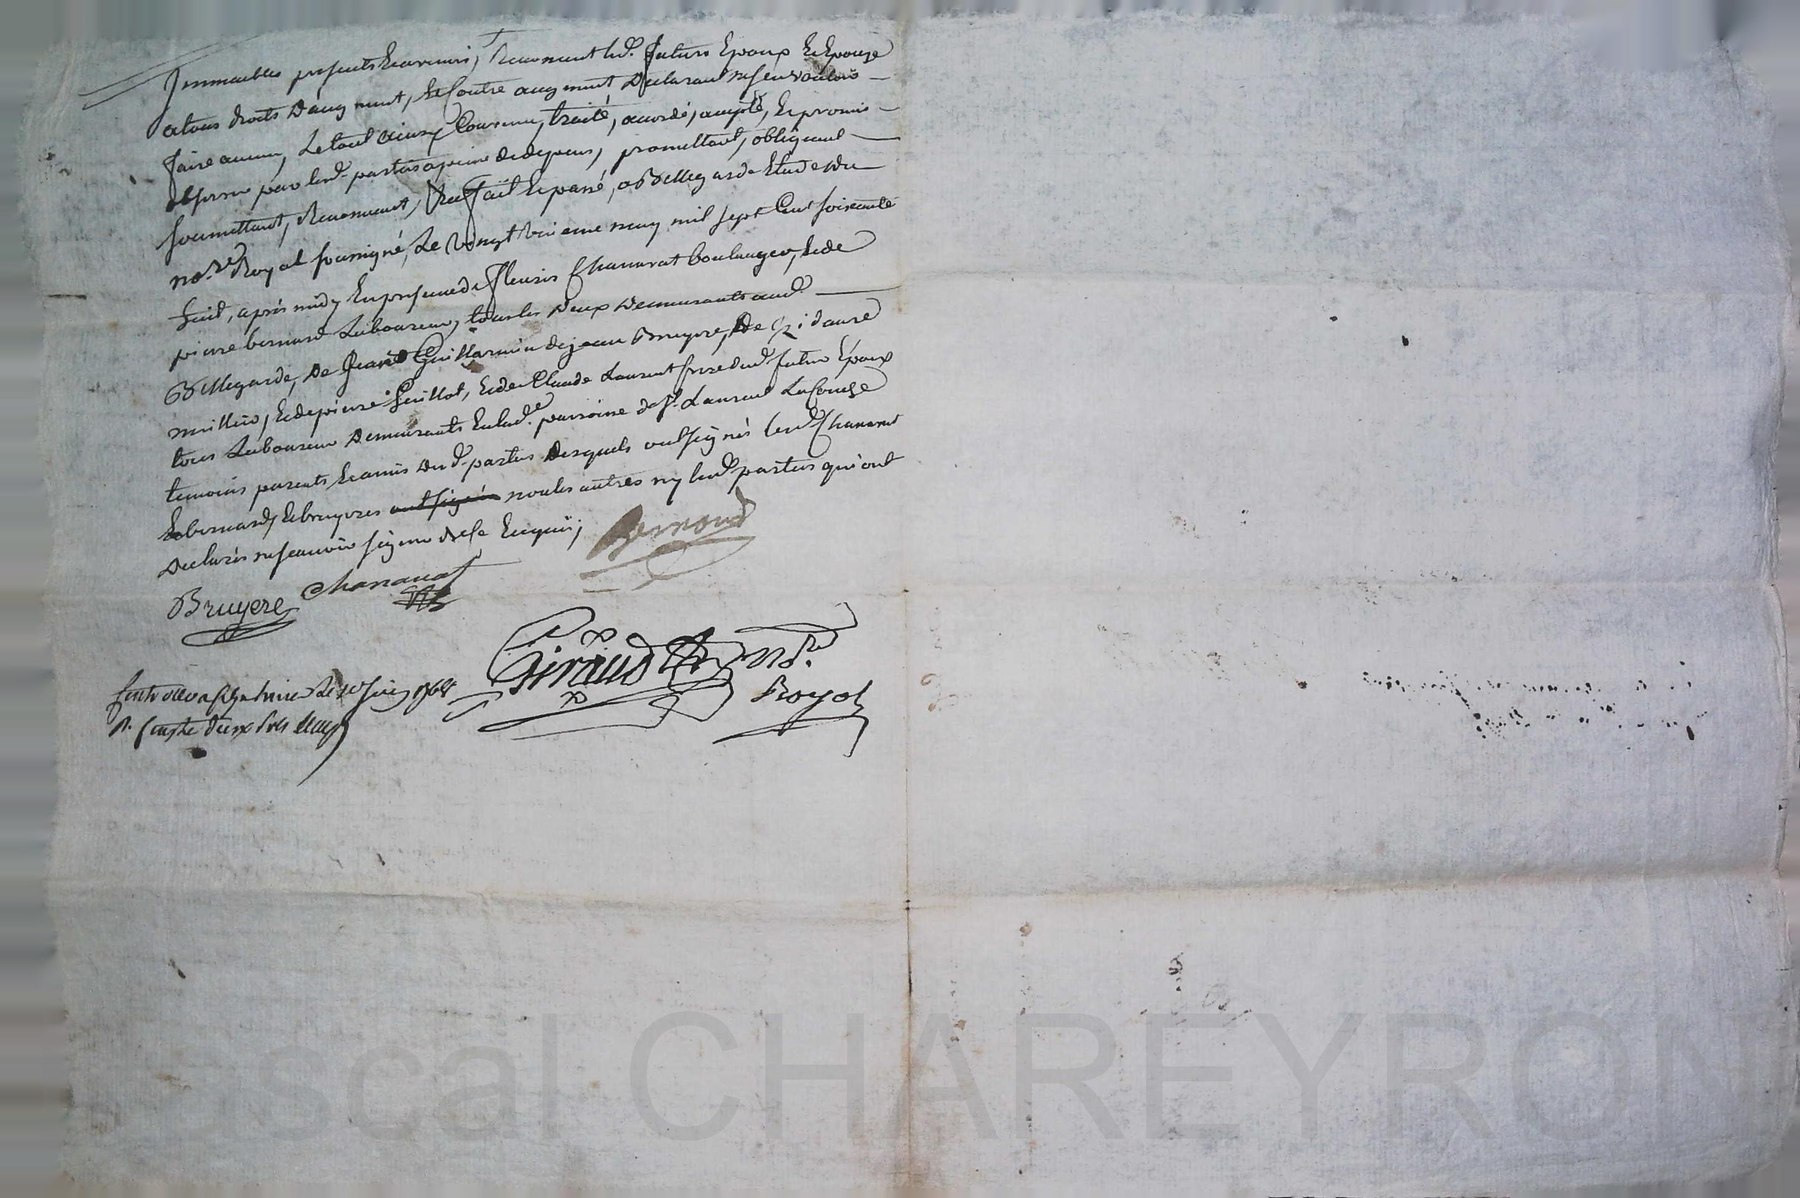 Immeubles presents Et avenir, Renoncent lesd. futurs Epoux Et Epouze
a tous droits D'augment, Et Contre augment Declarant n'en vouloir
faire aucun, Le tout ainsy Convenu, traité, accordé, accepté, Et promis
observer par lesd. parties a peine de depens, promettant, obligeant
soumettant, Renoncant, fait Et passé, a Bellegarde Etude du
no.re Royal soussigné, Le vingt may mil sept Cent soixante
huit, aprés midy En presence de fleuris Chanavat boulanger, Et de
pierre bernard Laboureur, tous les Deux Demeurants aud.
Bellegarde, De Jean Guillarmin de jean Bruyere, De
meillieu, Et de pierre Guillot, Et de Claude Laurent frere dud. futur Epoux
tous Laboureur Demeurants En lad.e parroisse de S.t Laurent La Conche
temoins parents Et amis desd. parties Desquels ont signés lesd. Chanavat
Et bernard, Et bruyeres ont signés non les autres ny lesd. parties qui ont
Declarés ne scavoir signer de ce Enquis;
Bernard
Bruyere Chanavat
Giraud No.re
Royal
Controllé a le juin 1768
R. Deux sols
Pascal CHAREYRON